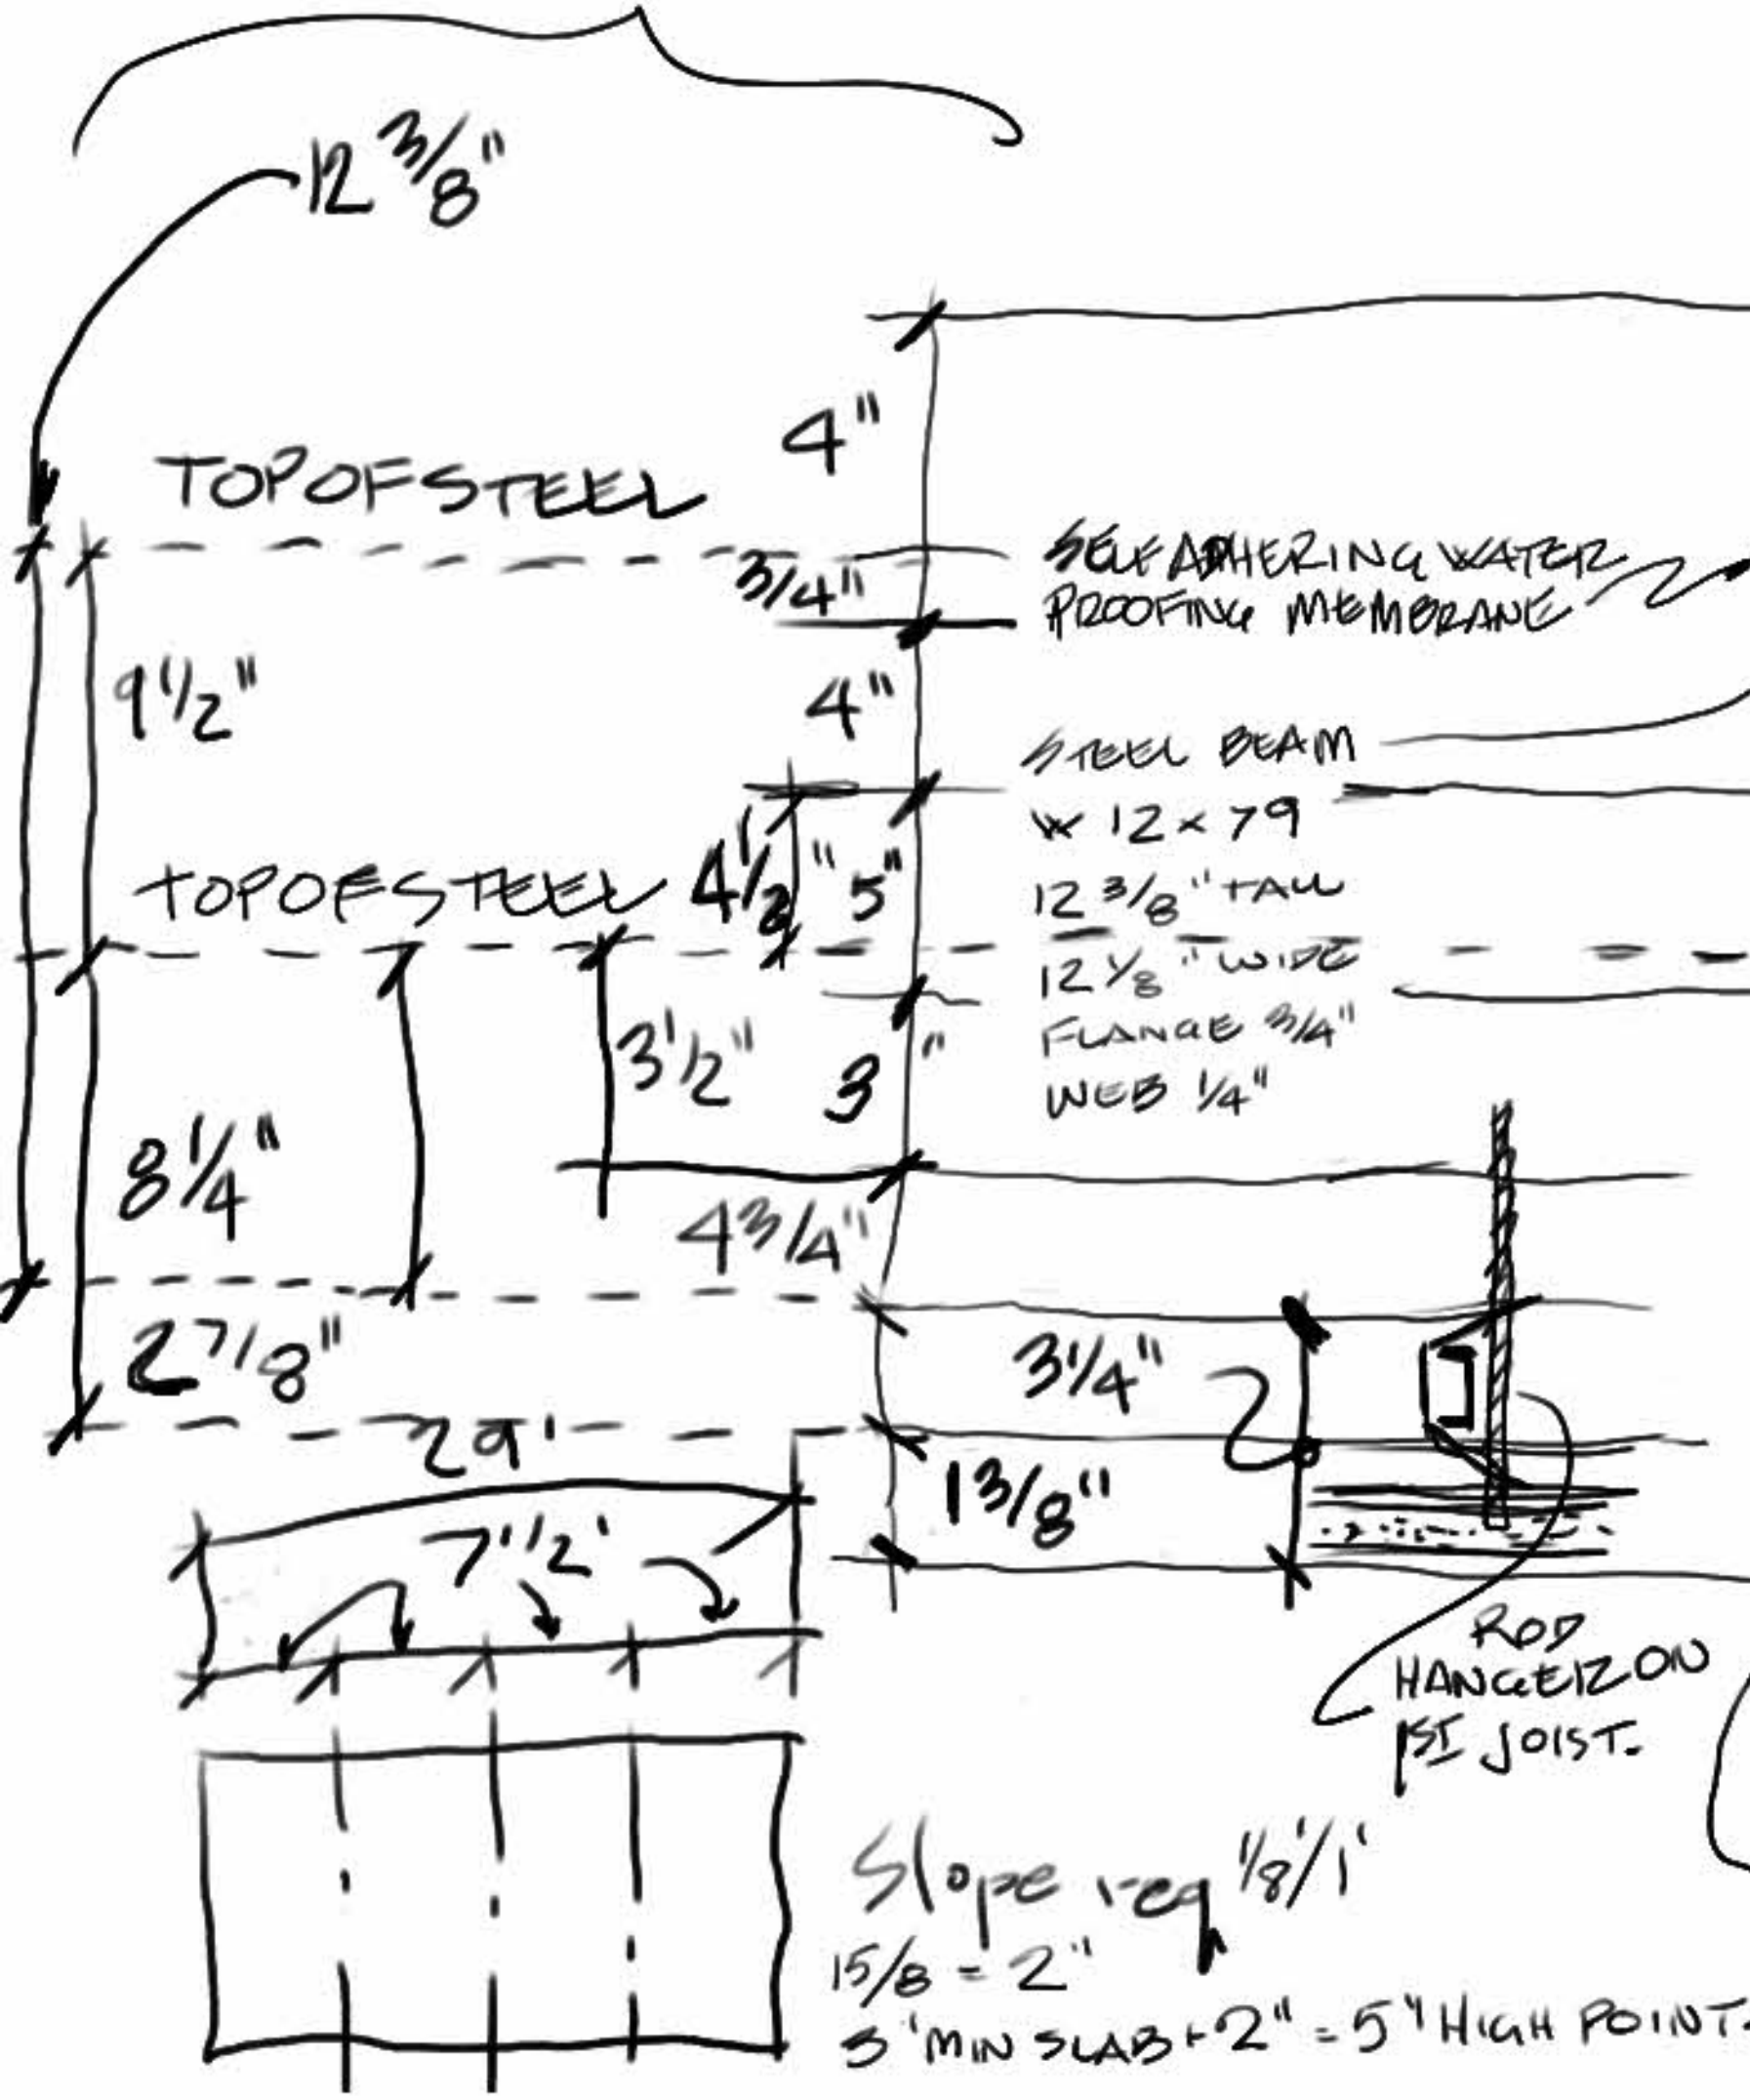 12 3/8"
4"
TOP OF STEEL
3/4"
SELF ADHERING WATER
PROOFING MEMBRANE
9 1/2"
4"
STEEL BEAM
W 12 x 79
12 3/8" TALL
12 1/8" WIDE
FLANGE 3/4"
WEB 1/4"
TOP OF STEEL
4 1/2"
5"
3 1/2"
3"
8 1/4"
4 3/4"
2 7/8"
3 1/4"
29'
1 3/8"
7 1/2'
ROD
HANGER ON
1ST JOIST.
Slope req 1/8'/1'
15/8 = 2"
3' MIN SLAB + 2" = 5" HIGH POINT.